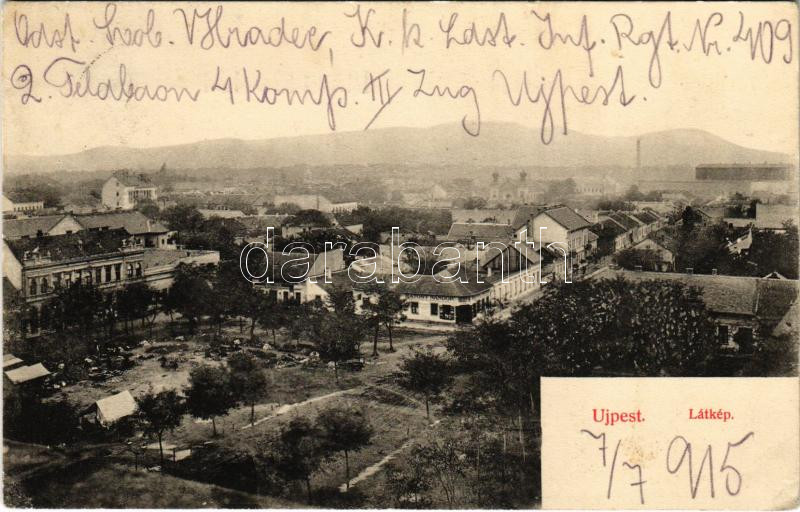 Odst. Svob. V Hradec, K. k. Ldst. Inf. Rgt. Nr. 409
2. Feldbaon 4 Komp. III Zug Ujpest.
darabanth
Ujpest. Látkép.
7/7 915